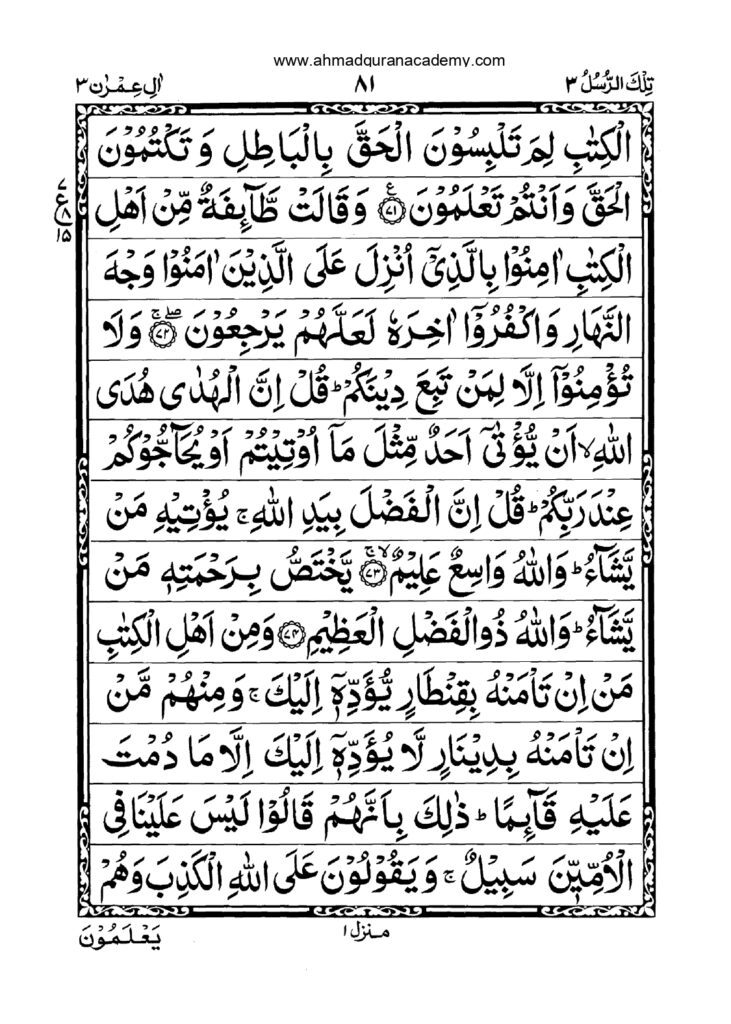 www.ahmadquranacademy.com
تِلْكَ الرُّسُلُ ٣
٨١
اٰلِ عِمْرٰن ٣
الْكِتٰبِ لِمَ تَلْبِسُوْنَ الْحَقَّ بِالْبَاطِلِ وَ تَكْتُمُوْنَ
الْحَقَّ وَاَنْتُمْ تَعْلَمُوْنَ ﴿٧١﴾ ع وَ قَالَتْ طَّآئِفَةٌ مِّنْ اَهْلِ
٧ ع ٨ ١٥
الْكِتٰبِ اٰمِنُوْا بِالَّذِيْۤ اُنْزِلَ عَلَى الَّذِيْنَ اٰمَنُوْا وَجْهَ
النَّهَارِ وَاكْفُرُوْۤا اٰخِرَهٗ لَعَلَّهُمْ يَرْجِعُوْنَ ﴿٧٢﴾ وَلَا
تُؤْمِنُوْۤا اِلَّا لِمَنْ تَبِعَ دِيْنَكُمْ ؕ قُلْ اِنَّ الْهُدٰى هُدَى
اللّٰهِ ۙ اَنْ يُّؤْتٰۤى اَحَدٌ مِّثْلَ مَاۤ اُوْتِيْتُمْ اَوْيُحَآجُّوْكُمْ
عِنْدَ رَبِّكُمْ ؕ قُلْ اِنَّ الْفَضْلَ بِيَدِ اللّٰهِ ۚ يُؤْتِيْهِ مَنْ
يَّشَآءُ ؕ وَاللّٰهُ وَاسِعٌ عَلِيْمٌ ﴿٧٣﴾ يَّخْتَصُّ بِرَحْمَتِهٖ مَنْ
يَّشَآءُ ؕ وَاللّٰهُ ذُوالْفَضْلِ الْعَظِيْمِ ﴿٧٤﴾ وَمِنْ اَهْلِ الْكِتٰبِ
مَنْ اِنْ تَاْمَنْهُ بِقِنْطَارٍ يُّؤَدِّهٖۤ اِلَيْكَ ۚ وَمِنْهُمْ مَّنْ
اِنْ تَاْمَنْهُ بِدِيْنَارٍ لَّا يُؤَدِّهٖۤ اِلَيْكَ اِلَّا مَا دُمْتَ
عَلَيْهِ قَآئِمًا ؕ ذٰلِكَ بِاَنَّهُمْ قَالُوْا لَيْسَ عَلَيْنَا فِى
الْاُمِّيّٖنَ سَبِيْلٌ ۚ وَيَقُوْلُوْنَ عَلَى اللّٰهِ الْكَذِبَ وَهُمْ
منزل ١
يَعْلَمُوْنَ